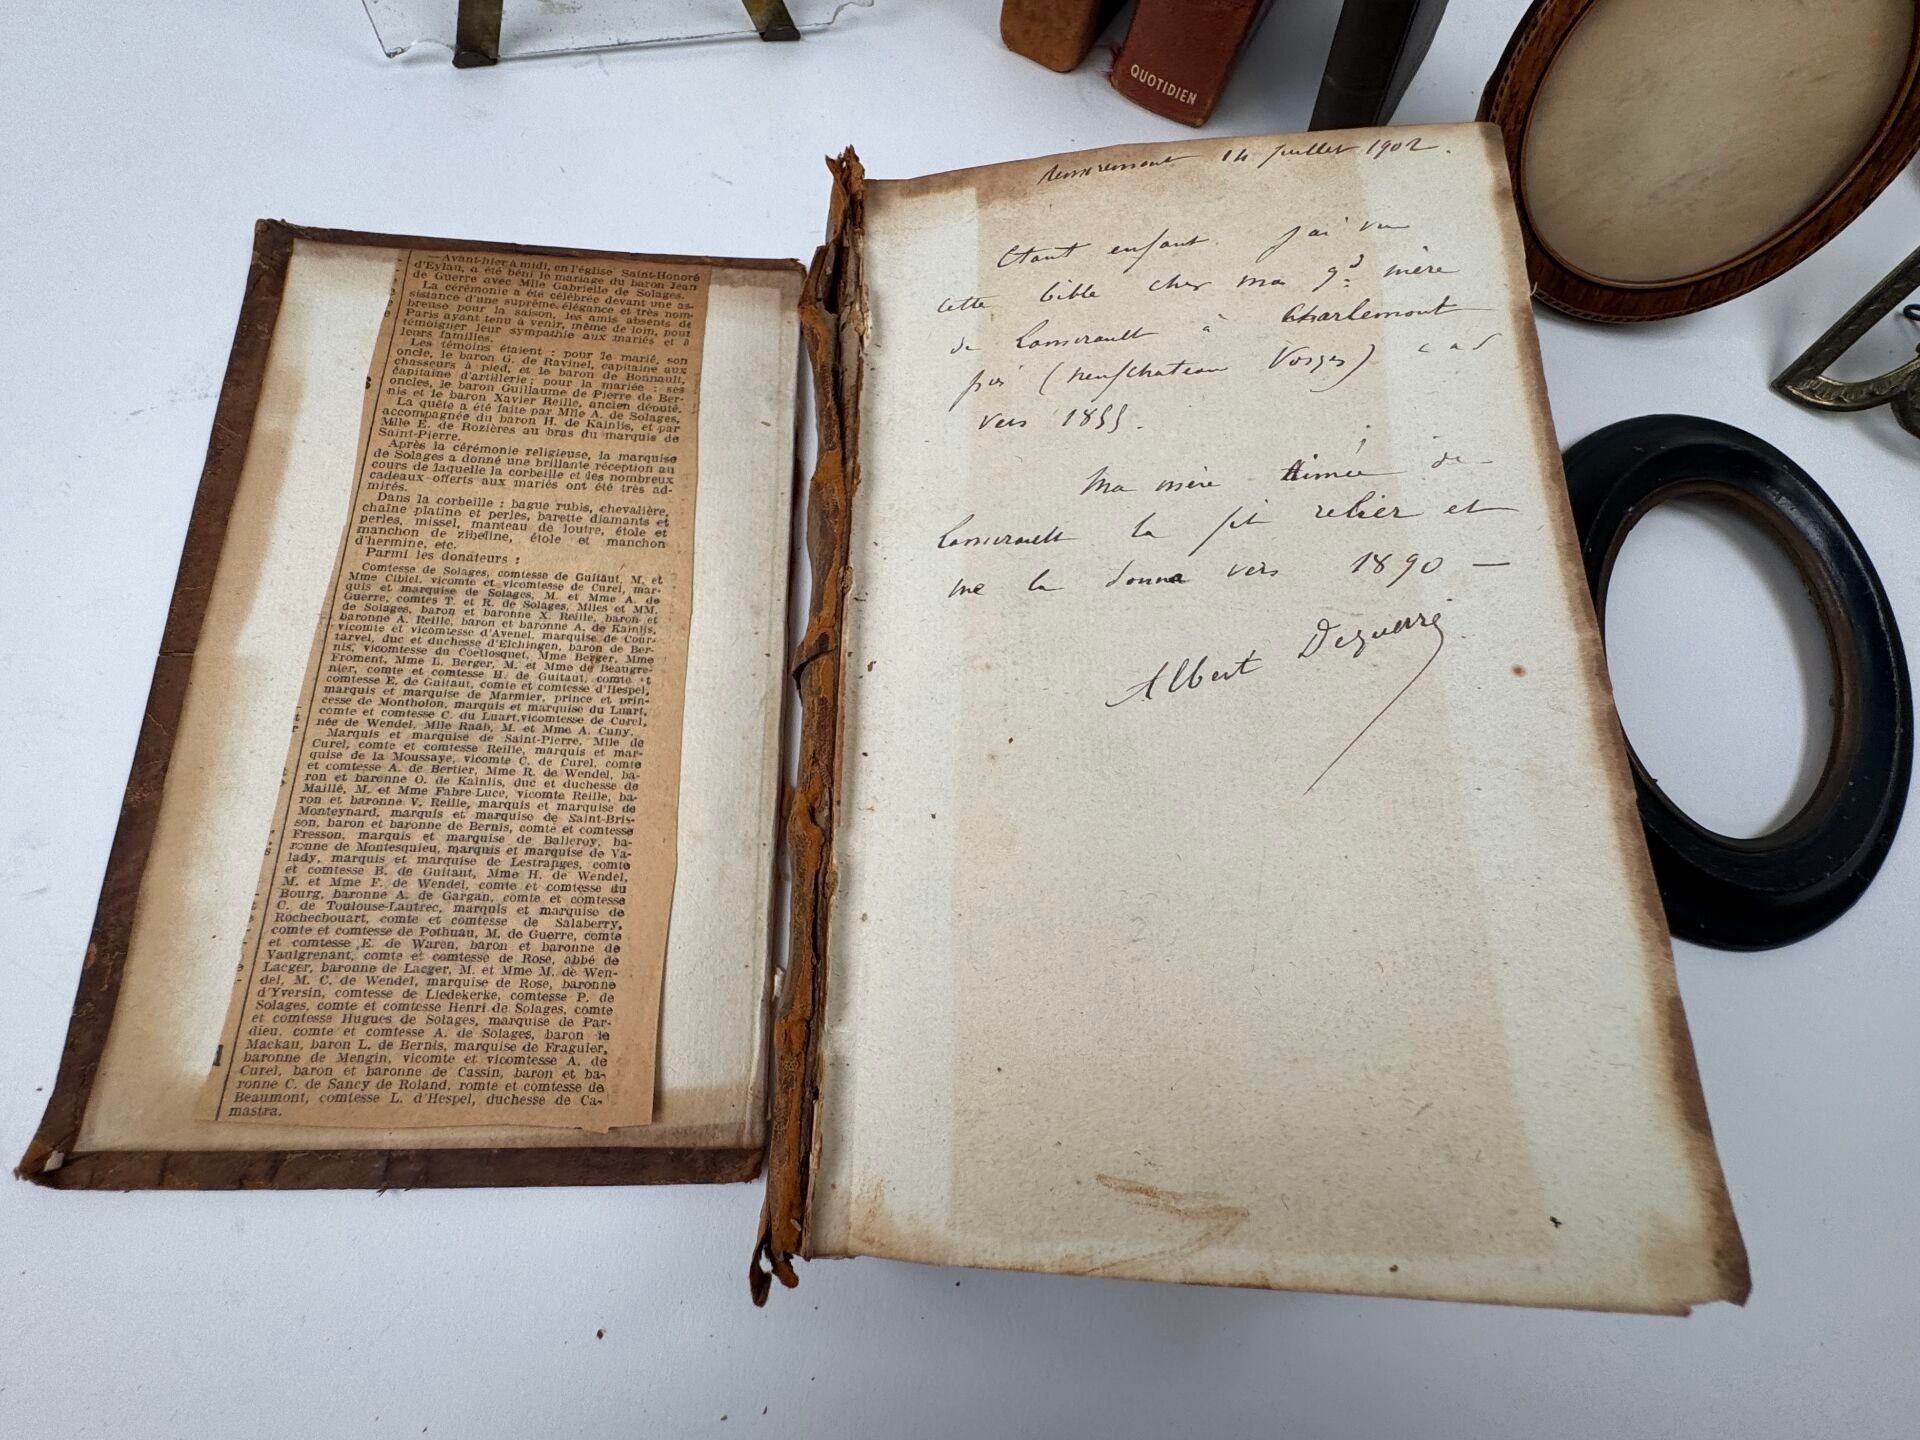 QUOTIDIEN
—Avant-hier à midi, en l'église Saint-Honoré
d'Eylau, a été béni le mariage du baron Jean
de Guerre avec Mlle Gabrielle de Solages.
La cérémonie a été célébrée devant une as-
sistance d'une suprême élégance et très nom-
breuse pour la saison, les amis absents de
Paris ayant tenu à venir, même de loin, pour
témoigner leur sympathie aux mariés et à
leurs familles.
Les témoins étaient : pour le marié, son
oncle, le baron G. de Ravinel, capitaine aux
chasseurs à pied, et le baron de Bonnault,
capitaine d'artillerie ; pour la mariée : ses
oncles, le baron Guillaume de Pierre de Ber-
nis et le baron Xavier Reille, ancien député.
La quête a été faite par Mlle A. de Solages,
accompagnée du baron H. de Kainlis, et par
Mlle E. de Rozières au bras du marquis de
Saint-Pierre.
Après la cérémonie religieuse, la marquise
de Solages a donné une brillante réception au
cours de laquelle la corbeille et les nombreux
cadeaux offerts aux mariés ont été très ad-
mirés.
Dans la corbeille : bague rubis, chevalière,
chaîne platine et perles, barette diamants et
perles, missel, manteau de loutre, étole et
manchon de zibeline, étole et manchon
d'hermine, etc.
Parmi les donateurs :
Comtesse de Solages, comtesse de Guitaut, M. et
Mme Cibiel, vicomte et vicomtesse de Curel, mar-
quis et marquise de Solages, M. et Mme A. de
Guerre, comtes T. et R. de Solages, Mlles et MM.
de Solages, baron et baronne X. Reille, baron et
baronne A. Reille, baron et baronne A. de Kainlis,
vicomte et vicomtesse d'Avenel, marquise de Cour-
tarvel, duc et duchesse d'Elchingen, baron de Ber-
nis, vicomtesse du Coëtlosquet, Mme Berger, Mme
Froment, Mme L. Berger, M. et Mme de Beaugre-
nier, comte et comtesse H. de Guitaut, comte et
comtesse E. de Guitaut, comte et comtesse d'Hespel,
marquis et marquise de Marmier, prince et prin-
cesse de Montholon, marquis et marquise du Luart,
comte et comtesse C. du Luart, vicomtesse de Curel,
née de Wendel, Mlle Raab, M. et Mme A. Cuny.
Marquis et marquise de Saint-Pierre, Mlle de
Curel, comte et comtesse Reille, marquis et mar-
quise de la Moussaye, vicomte C. de Curel, comte
et comtesse A. de Bertier, Mme R. de Wendel, ba-
ron et baronne O. de Kainlis, duc et duchesse de
Maillé, M. et Mme Fabre-Luce, vicomte Reille, ba-
ron et baronne V. Reille, marquis et marquise de
Monteynard, marquis et marquise de Saint-Bris-
son, baron et baronne de Bernis, comte et comtesse
Fresson, marquis et marquise de Balleroy, ba-
ronne de Montesquieu, marquis et marquise de Va-
lady, marquis et marquise de Lestranges, comte
et comtesse B. de Guitaut, Mme H. de Wendel,
M. et Mme F. de Wendel, comte et comtesse du
Bourg, baronne A. de Gargan, comte et comtesse
C. de Toulouse-Lautrec, marquis et marquise de
Rochechouart, comte et comtesse de Salaberry,
comte et comtesse de Pothuau, M. de Guerre, comte
et comtesse E. de Waren, baron et baronne de
Vaulgrenant, comte et comtesse de Rose, abbé de
Lacger, baronne de Lacger, M. et Mme M. de Wen-
del, M. C. de Wendel, marquise de Rose, baronne
d'Yversin, comtesse de Liedekerke, comtesse P. de
Solages, comte et comtesse Henri de Solages, comte
et comtesse Hugues de Solages, marquise de Par-
dieu, comte et comtesse A. de Solages, baron de
Mackau, baron L. de Bernis, marquise de Fraguier,
baronne de Mengin, vicomte et vicomtesse A. de
Curel, baron et baronne de Cassin, baron et ba-
ronne C. de Sancy de Roland, romte et comtesse de
Beaumont, comtesse L. d'Hespel, duchesse de Ca-
mastra.
Remiremont 14 Juillet 1902.
Etant enfant j'ai vu
cette bible chez ma gd mère
de Lamirault à Charlemont
près (Neufchateau Vosges)
vers 1855.
Ma mère Aimée de
Lamirault la fit relier et
me la donna vers 1890 —
Albert Deguerre